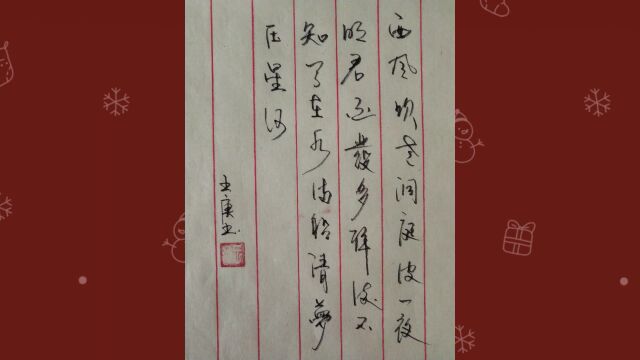 西风吹老洞庭波一夜
湘君白發多醉後不
知天在水满船清夢
压星河
王庚书